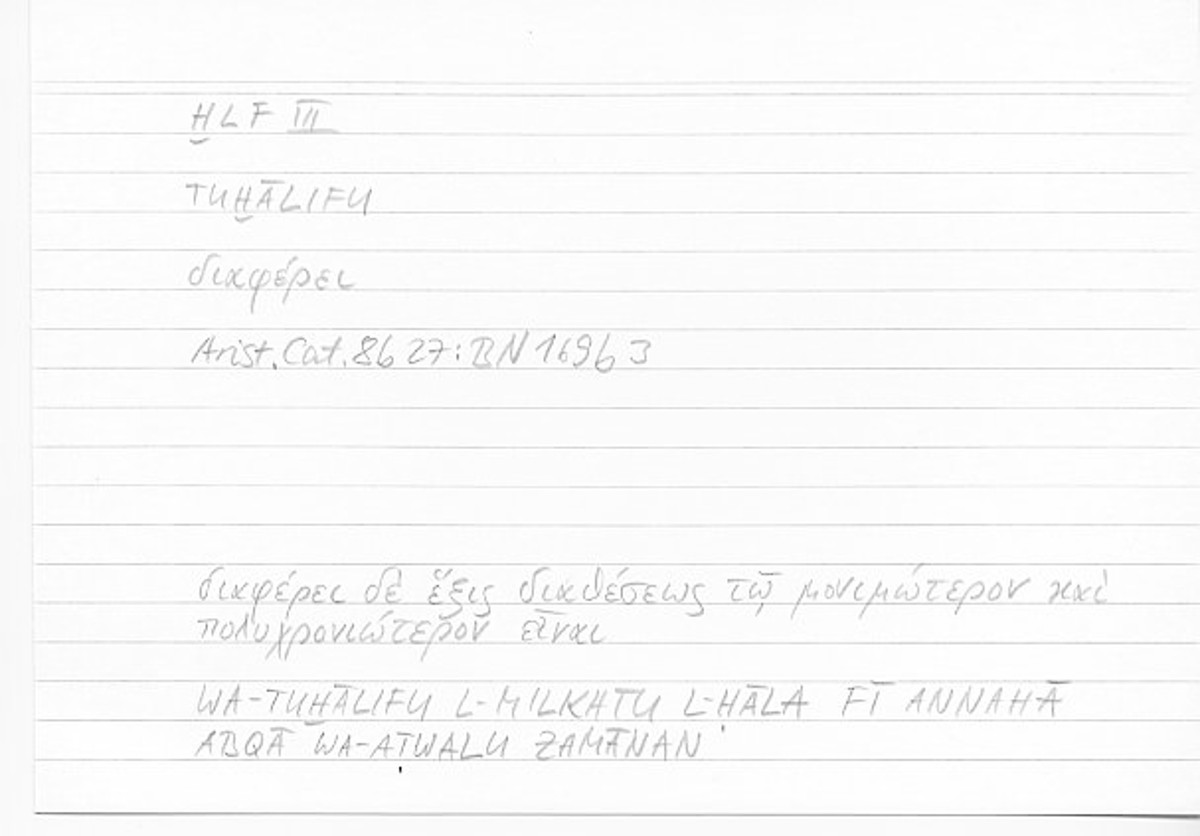 ḪLF III
TUḪĀLIFU
διαφέρει
Arist. Cat. 8b 27 : BN 169b 3
διαφέρει δὲ ἕξις διαθέσεως τῷ μονιμώτερον καὶ
πολυχρονιώτερον εἶναι
WA-TUḪĀLIFU L-MILKATU L-ḤĀLA FĪ ANNAHĀ
ABQĀ WA-AṬWALU ZAMĀNAN